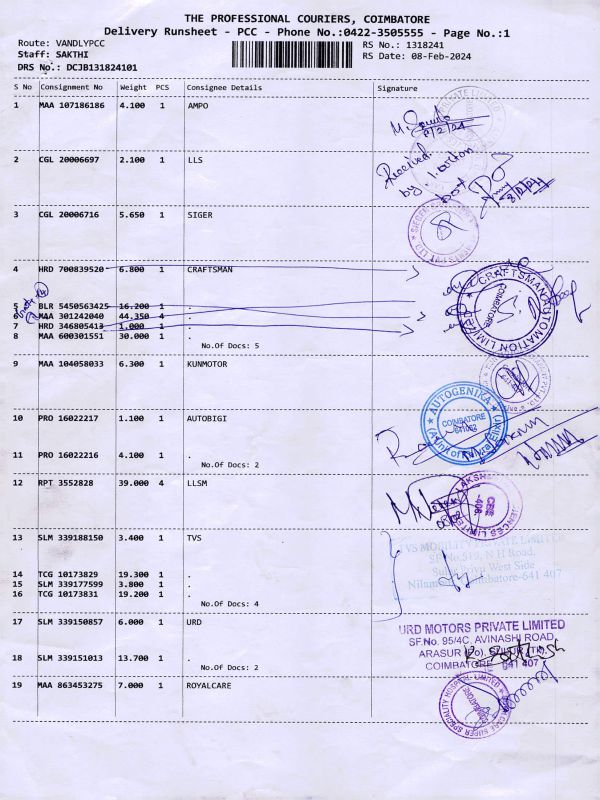 THE PROFESSIONAL COURIERS, COIMBATORE
Delivery Runsheet - PCC - Phone No.:0422-3505555 - Page No.:1
Route: VANDLYPCC RS No.: 1318241
Staff: SAKTHI RS Date: 08-Feb-2024
DRS No.: DCJB131824101
S No Consignment No Weight PCS Consignee Details Signature
1 MAA 107186186 4.100 1 AMPO
8/2/24
2 CGL 20006697 2.100 1 LLS
Received
by 1. carton
box
3 CGL 20006716 5.650 1 SIGER
4 HRD 700839520 6.800 1 CRAFTSMAN
CRAFTSMAN AUTOMATION LIMITED
COIMBATORE
5 BLR 5450563425 16.200 1 .
6 MAA 301242040 44.350 4 .
7 HRD 346805413 1.000 1 .
8 MAA 600301551 30.000 1 .
No.Of Docs: 5
9 MAA 104058033 6.300 1 KUNMOTOR
10 PRO 16022217 1.100 1 AUTOBIGI
AUTOGENIKA
COIMBATORE
641062
11 PRO 16022216 4.100 1 .
No.Of Docs: 2
12 RPT 3552828 39.000 4 LLSM
CBE
-406.
13 SLM 339188150 3.400 1 TVS
TVS MOBILITY PRIVATE LIMITED
SF No.519, N H Road,
West Side
Coimbatore-641 407
14 TCG 10173829 19.300 1 .
15 SLM 339177599 3.800 1 .
16 TCG 10173831 19.200 1 .
No.Of Docs: 4
17 SLM 339150857 6.000 1 URD
URD MOTORS PRIVATE LIMITED
SF.No. 95/4C, AVINASHI ROAD,
ARASUR (Po), SULUR (TK),
COIMBATORE 641 407
18 SLM 339151013 13.700 1 .
No.Of Docs: 2
19 MAA 863453275 7.000 1 ROYALCARE
ROYAL CARE SUPER SPECIALITY HOSPITAL LIMITED
COIMBATORE